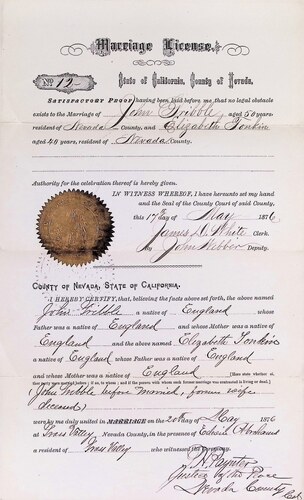 Marriage License.
No. 12
State of California, County of Nevada.
SATISFACTORY PROOF having been laid before me that no legal obstacle
exists to the Marriage of John Tribble aged 50 years
resident of Nevada County, and Elizabeth Tonkin
aged 46 years, resident of Nevada County.
Authority for the celebration thereof is hereby given.
IN WITNESS WHEREOF, I have hereunto set my hand
and the Seal of the County Court of said County
this 17th day of May 1876
James D. White Clerk.
By John Webber Deputy.
COUNTY OF NEVADA, STATE OF CALIFORNIA.
I HEREBY CERTIFY, that, believing the facts above set forth, the above named
John Tribble a native of England, whose
Father was a native of England and whose Mother was a native
England and the above named Elizabeth Tonkin
a native of England whose Father was a native of England
and whose Mother was a native of England
(John Tribble before married, former wife
deceased)
were by me duly united in MARRIAGE on the 20th of May 1876
at Grass Valley Nevada County, in the presence of Edwin Abrahams
a resident of Grass Valley who witnessed the Ceremony.
Paynter
Justice of the Peace
Nevada County